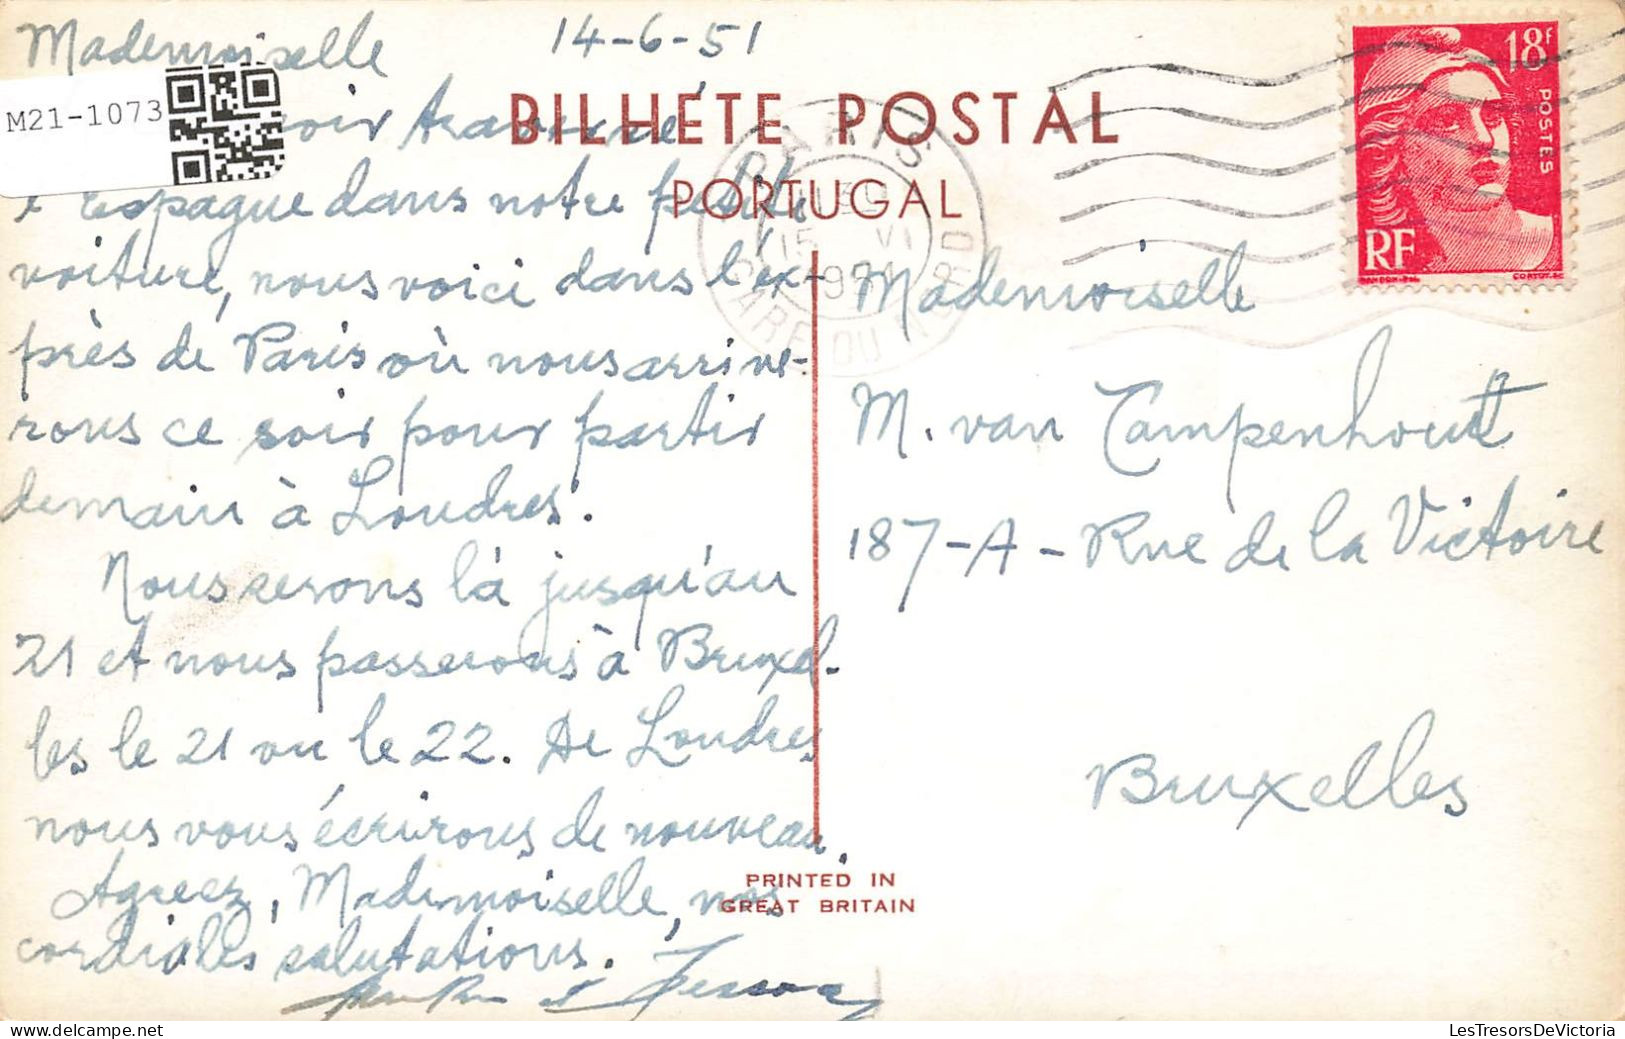 Mademoiselle 14-6-51
M21-1073
BILHETE POSTAL
traversé
PORTUGAL
Espagne dans notre petite
voiture, nous voici dans l'ex-
près de Paris où nous arrive-
rons ce soir pour partir
demain à Londres.
Nous serons là jusqu'au
21 et nous passerons à Bruxel-
les le 21 ou le 22. De Londres
nous vous écrirons de nouveau.
Agreez, Mademoiselle, nos
cordiales salutations.
18F
POSTES
RF
PARIS
GARE DU NORD
Mademoiselle
M. van Campenhout
187-A - Rue de la Victoire
Bruxelles
PRINTED IN
GREAT BRITAIN
LesTresorsDeVictoria